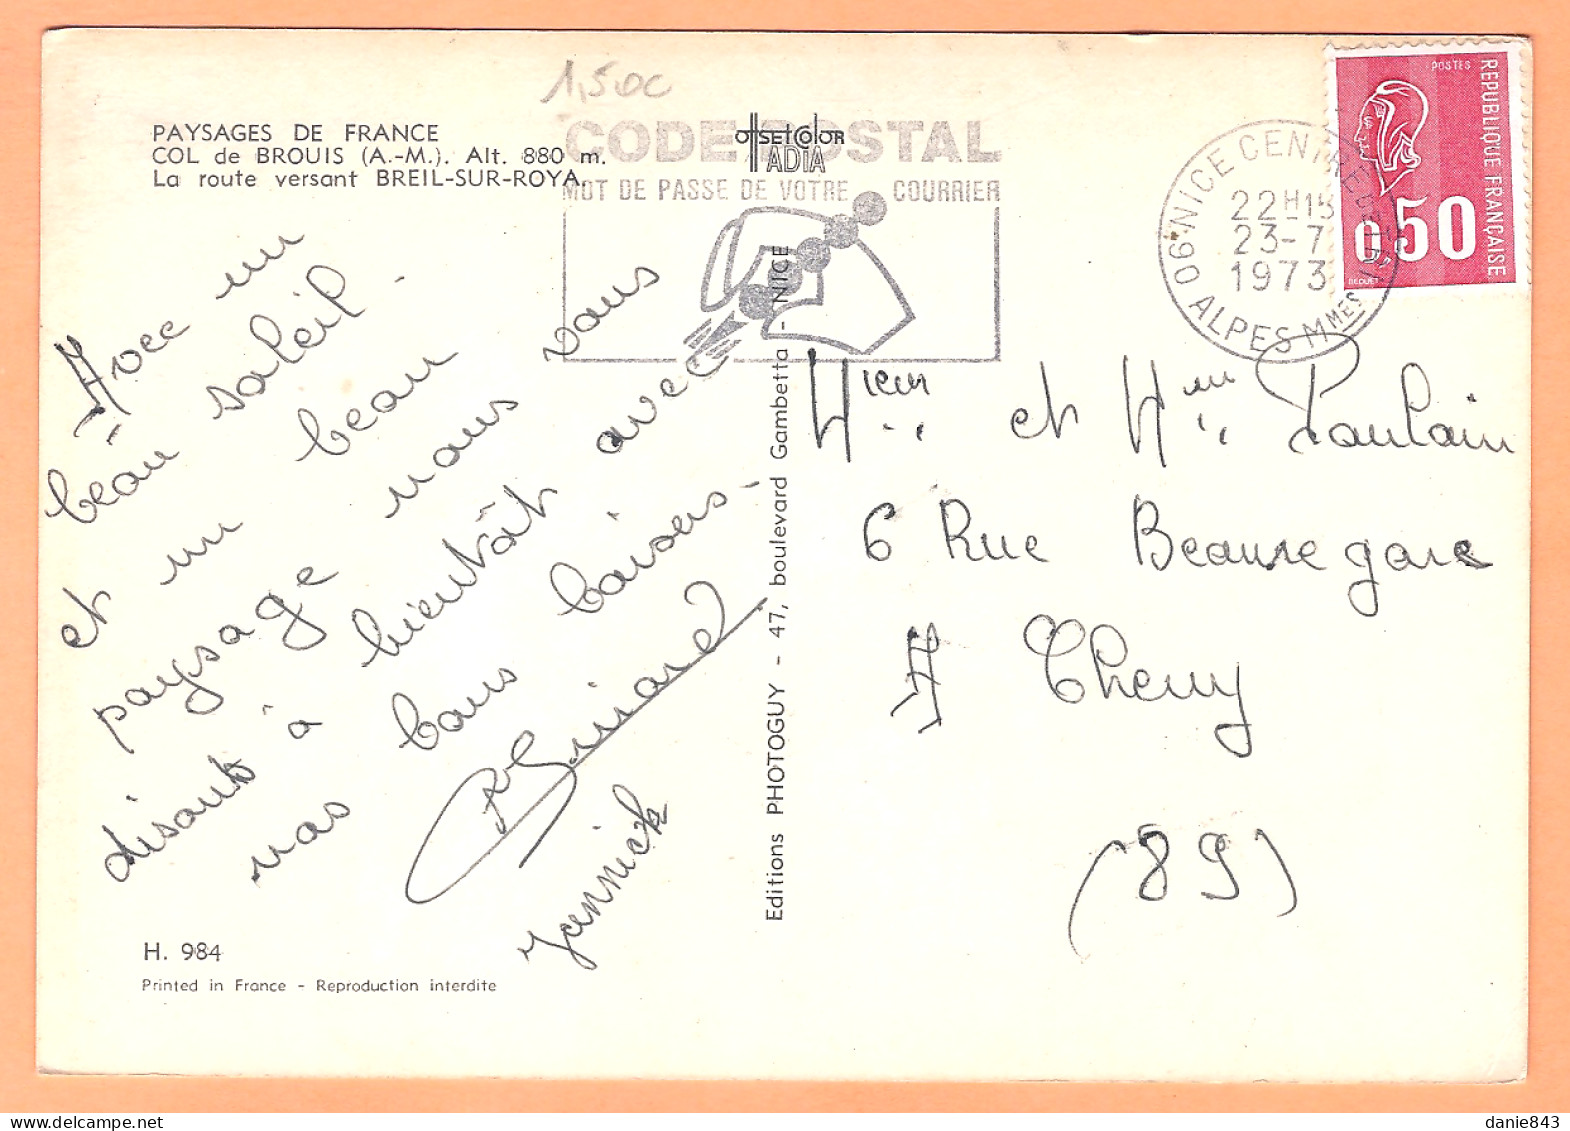 1,50c
PAYSAGES DE FRANCE
COL de BROUIS (A.-M.). Alt. 880 m.
La route versant BREIL-SUR-ROYA.
OFFSETCOLOR
IADIA
CODE POSTAL
MOT DE PASSE DE VOTRE COURRIER
06 NICE CENTRE
22H15
23-7
1973
ALPES MMES
POSTES
REPUBLIQUE FRANÇAISE
0,50
BEQUET
Avec un
beau soleil.
et un beau
paysage nous vous
disant à bientôt avec
nos bons baisers.
Guinard
Yannick
Editions PHOTOGUY - 47, boulevard Gambetta - NICE
Mieur et Mme Poulain
6 Rue Beauregard
A Cheny
(89)
H. 984
Printed in France - Reproduction interdite
danie843